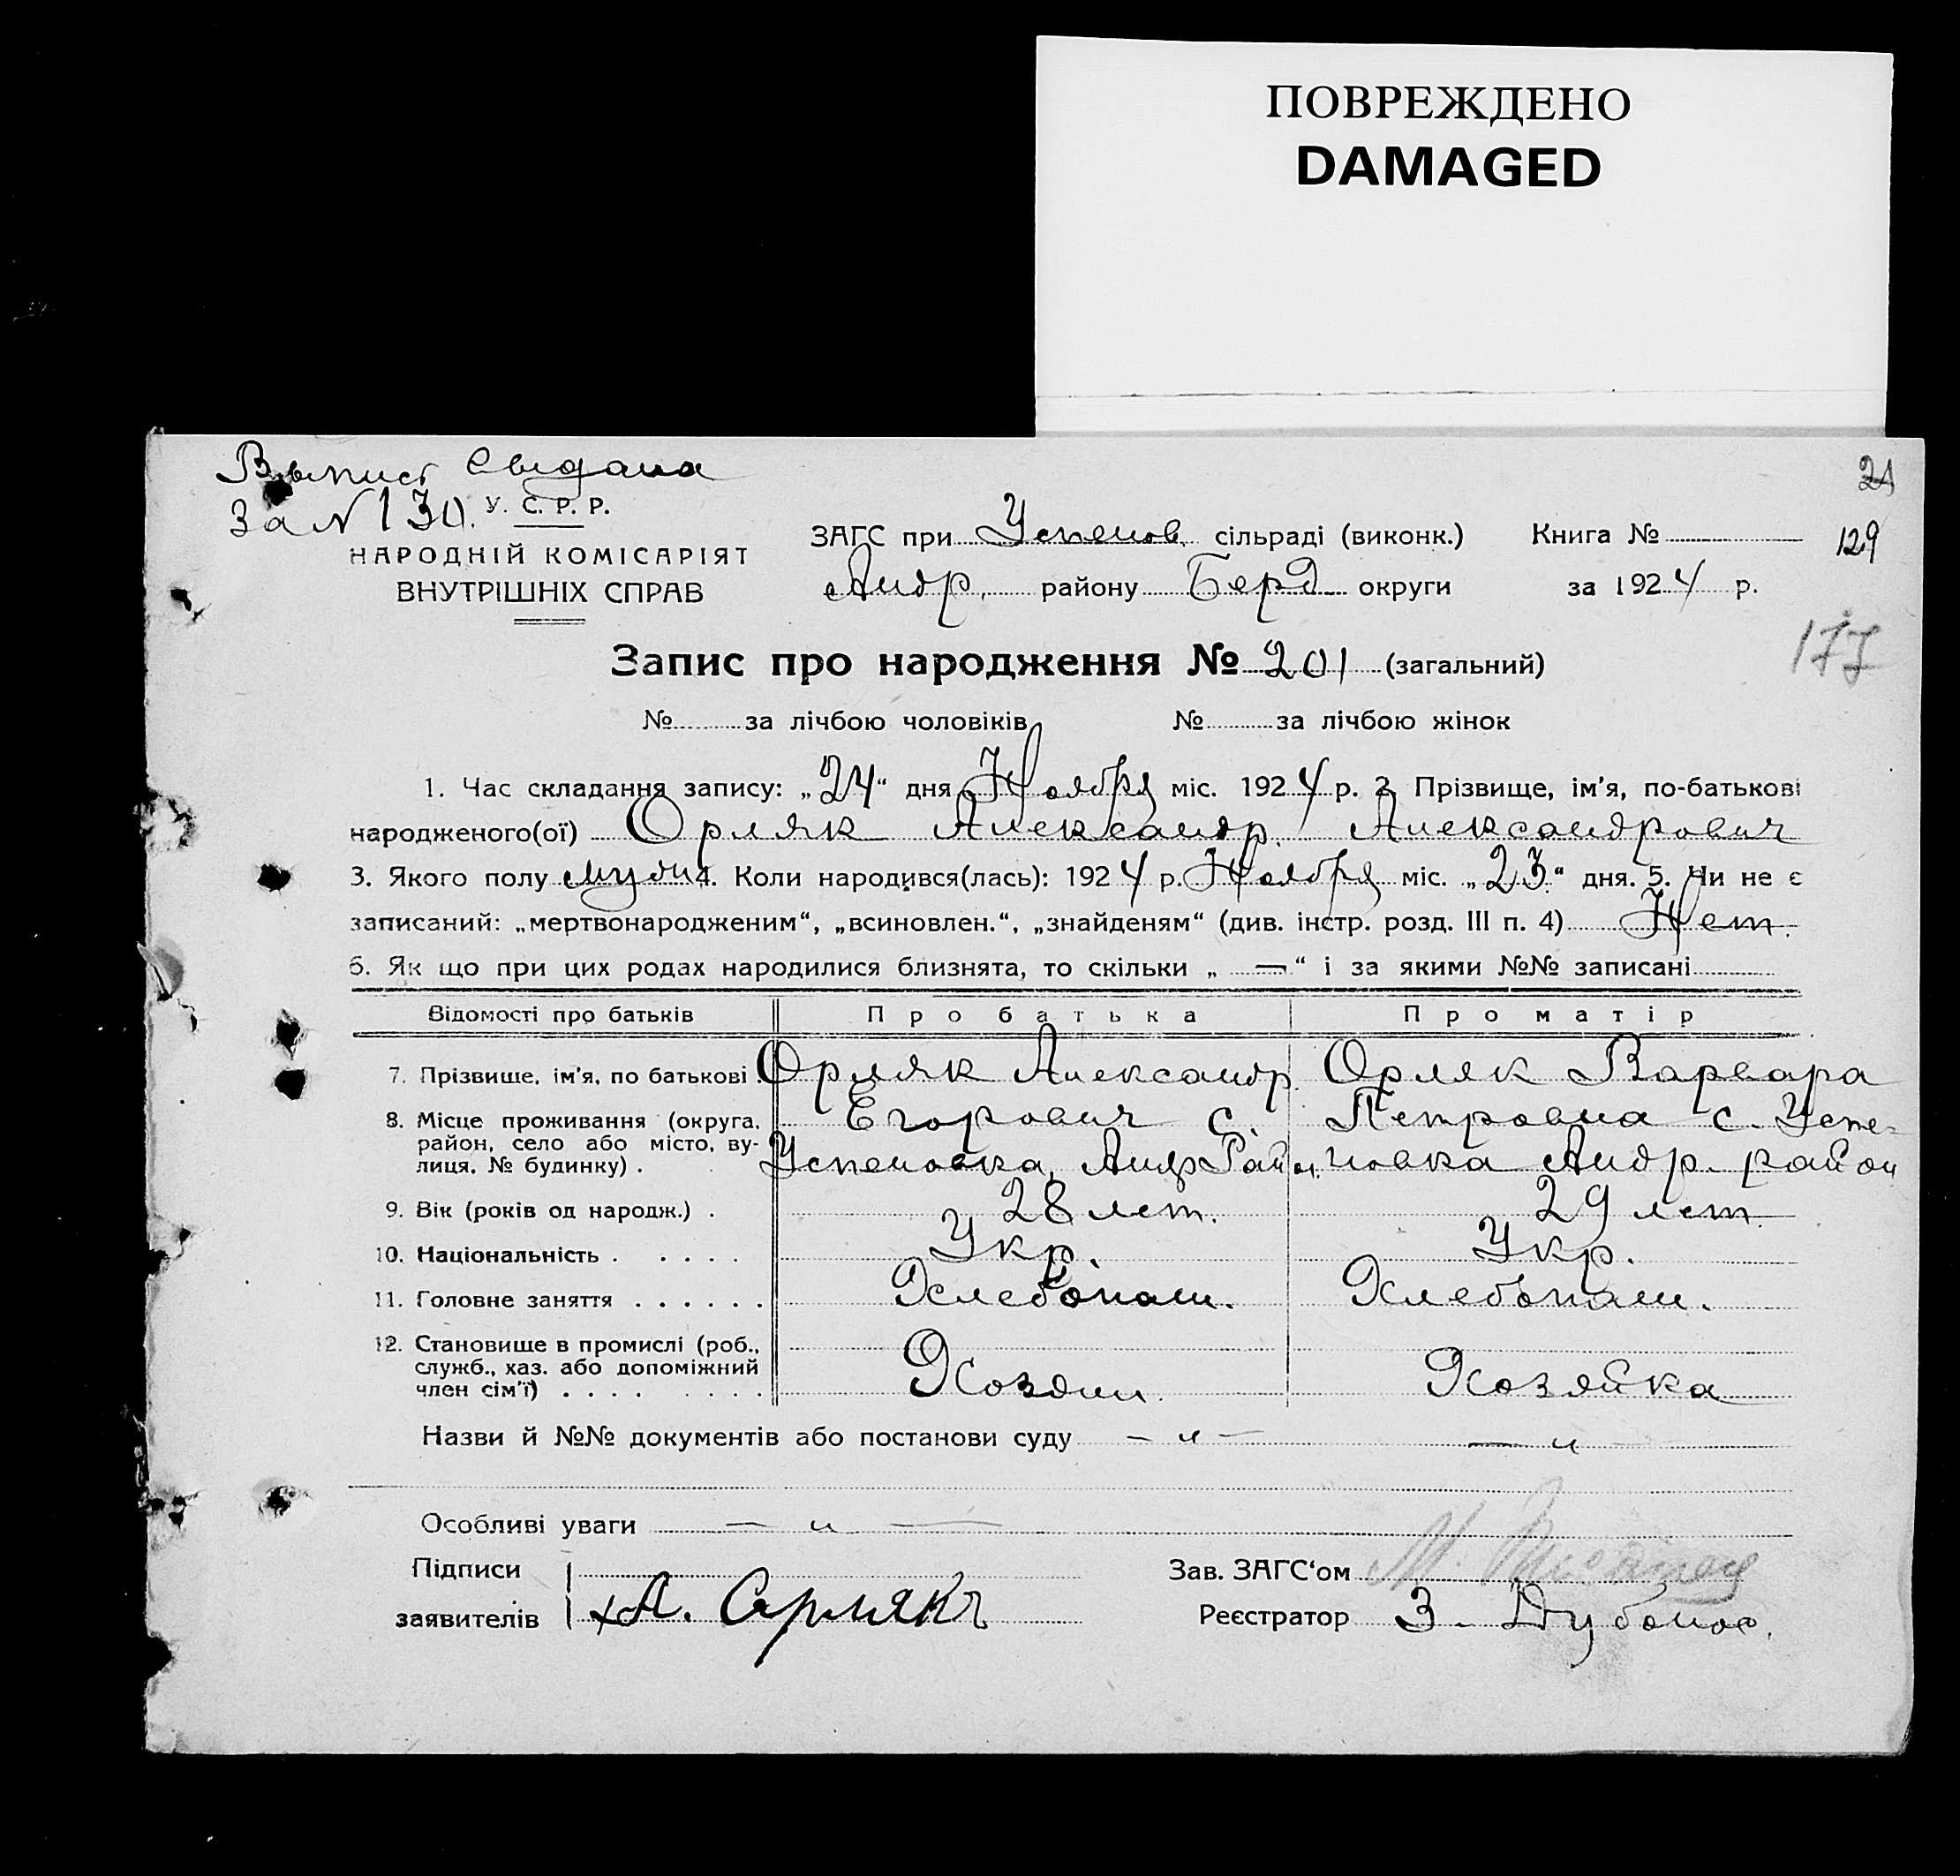 ПОВРЕЖДЕНО
DAMAGED
Выпись
21
За N 130.
У. С. Р. Р.
НАРОДНІЙ КОМІСАРІЯТ
ВНУТРІШНІХ СПРАВ
ЗАГС при Успенов. сільраді (виконк.) Книга №
129
Андр. району Берд округи за 1924 р.
177
Запис про народження № 201 (загальний)
№ за лічбою чоловіків № за лічбою жінок
1. Час складання запису: „24“ дня Ноября міс. 1924 р. 2. Прізвище, ім'я, по-батькові
народженого(ої) Орляк Александр. Александрович
3. Якого полу 4. Коли народився(лась): 1924 р. Ноября міс. „23.“ дня. 5. Чи не є
записаний: „мертвонародженим“, „всиновлен.“, „знайденям“ (див. інстр. розд. III п. 4) Нет.
6. Як що при цих родах народилися близнята, то скільки „ — “ і за якими №№ записані
Відомості про батьків Про батька Про матір
7. Прізвище, ім'я, по батькові. Орляк Александр. Орляк Варвара
8. Місце проживання (округа, Егорович с. Петровна с. Успе-
район, село або місто, ву-
лиця, № будинку) . Успеновка, Андр Район. новка Андр. район
9. Вік (років од народж.) . 28 лет. 29 лет.
10. Національність . . . . . Укр. Укр.
11. Головне заняття . . . . . . Хлебопаш. Хлебопаш.
12. Становище в промислі (роб.,
служб., хаз. або допоміжний
член сім'ї) . . . . . . . . Хозяин. Хозяйка
Назви й №№ документів або постанови суду — „ — — „
Особливі уваги — „ —
Підписи
заявителів ХА. Орлякъ
Зав. ЗАГС‘ом М.
Реєстратор З.